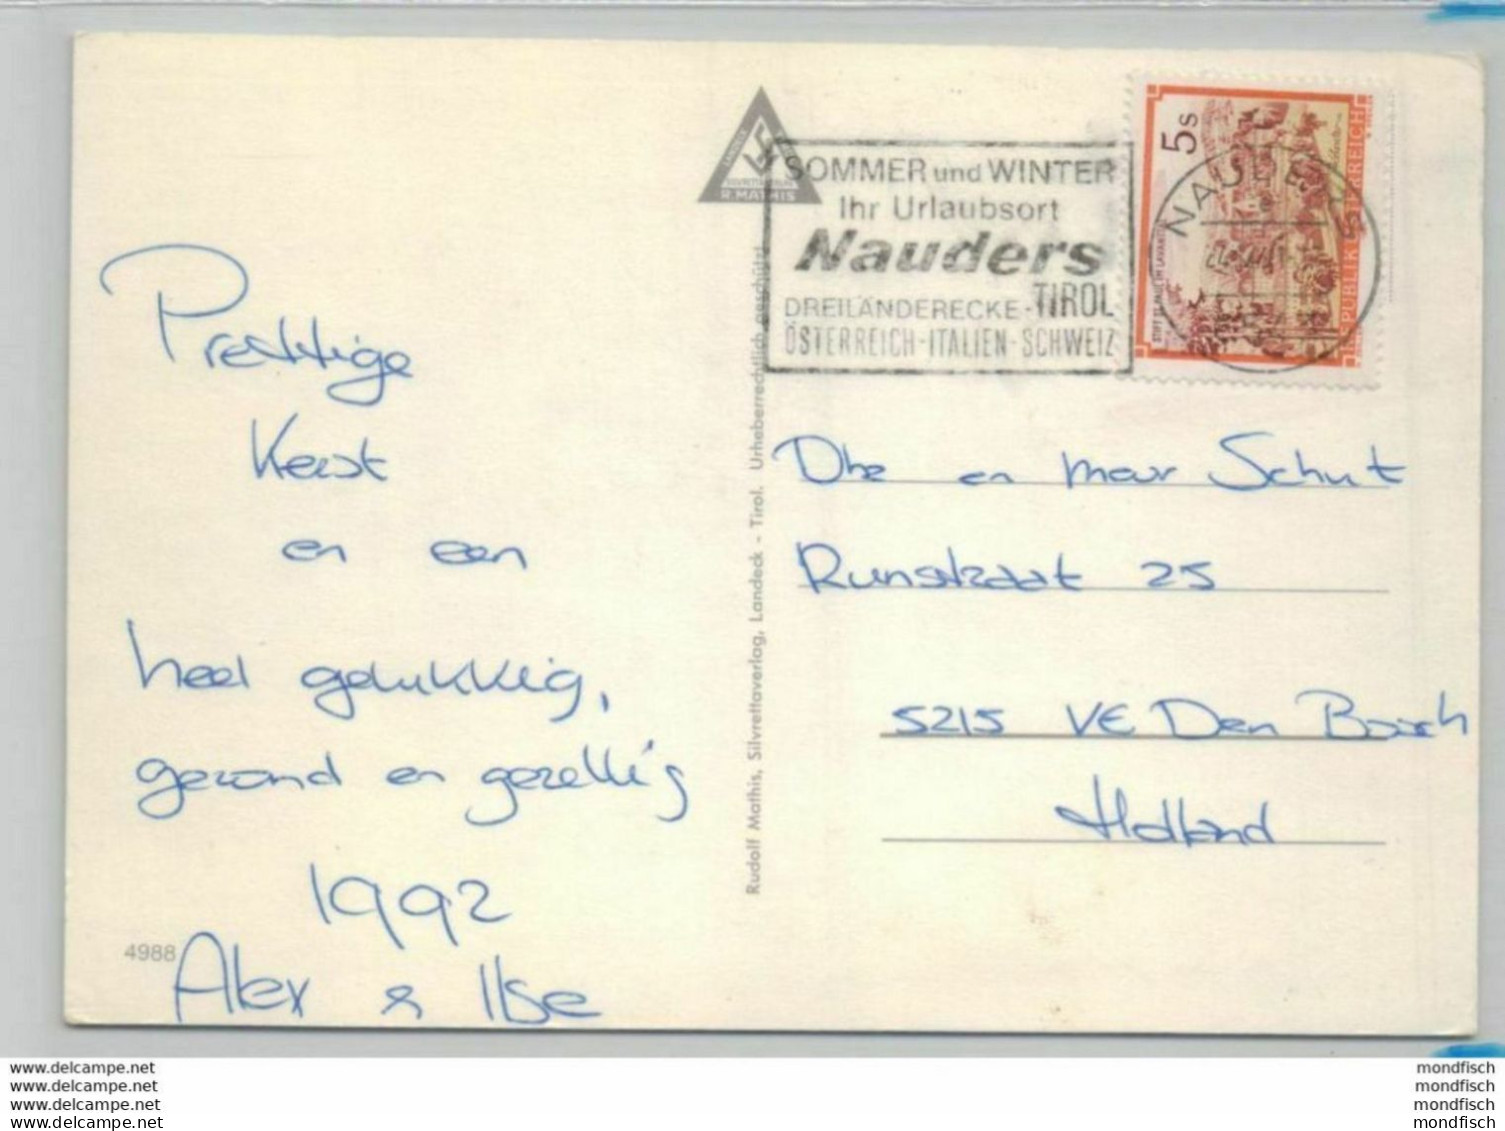 Prettige
Kerst
en een
heel gelukkig,
gezond en gezellig
1992
Alex & Ilse
4988
Rudolf Mathis, Silvrettaverlag, Landeck - Tirol. Urheberrechtlich geschützt
R. MATHIS
SOMMER und WINTER
Ihr Urlaubsort
Nauders
TIROL
DREILÄNDERECKE -
ÖSTERREICH - ITALIEN - SCHWEIZ
5 S
REPUBLIK ÖSTERREICH
NAUDERS
Dhr en mevr Schut
25
5215 VE Den Bosch
Holland
www.delcampe.net
www.delcampe.net
www.delcampe.net
www.delcampe.net
mondfisch
mondfisch
mondfisch
mondfisch